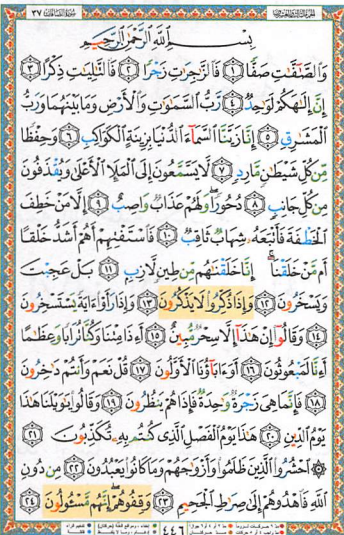 ٣٧
بِسْمِ اللَّهِ الرَّحْمَٰنِ الرَّحِيمِ
وَالصَّافَّاتِ صَفًّا ١ فَالزَّاجِرَاتِ زَجْرًا ٢ فَالتَّالِيَاتِ ذِكْرًا ٣
إِنَّ إِلَٰهَكُمْ لَوَاحِدٌ ٤ رَّبُّ السَّمَاوَاتِ وَالْأَرْضِ وَمَا بَيْنَهُمَا وَرَبُّ
الْمَشَارِقِ ٥ إِنَّا زَيَّنَّا السَّمَاءَ الدُّنْيَا بِزِينَةٍ الْكَوَاكِبِ ٦ وَحِفْظًا
مِّن كُلِّ شَيْطَانٍ مَّارِدٍ ٧ لَّا يَسَّمَّعُونَ إِلَى الْمَلَإِ الْأَعْلَىٰ وَيُقْذَفُونَ
مِن كُلِّ جَانِبٍ ٨ دُحُورًا وَلَهُمْ عَذَابٌ وَاصِبٌ ٩ إِلَّا مَنْ خَطِفَ
الْخَطْفَةَ فَأَتْبَعَهُ شِهَابٌ ثَاقِبٌ ١٠ فَاسْتَفْتِهِمْ أَهُمْ أَشَدُّ خَلْقًا
أَم مَّنْ خَلَقْنَا إِنَّا خَلَقْنَاهُم مِّن طِينٍ لَّازِبٍ ١١ بَلْ عَجِبْتَ
وَيَسْخَرُونَ ١٢ وَإِذَا ذُكِّرُوا لَا يَذْكُرُونَ ١٣ وَإِذَا رَأَوْا آيَةً يَسْتَسْخِرُونَ
١٤ وَقَالُوا إِنْ هَٰذَا إِلَّا سِحْرٌ مُّبِينٌ ١٥ أَإِذَا مِتْنَا وَكُنَّا تُرَابًا وَعِظَامًا
أَإِنَّا لَمَبْعُوثُونَ ١٦ أَوَآبَاؤُنَا الْأَوَّلُونَ ١٧ قُلْ نَعَمْ وَأَنتُمْ دَاخِرُونَ
١٨ فَإِنَّمَا هِيَ زَجْرَةٌ وَاحِدَةٌ فَإِذَا هُمْ يَنظُرُونَ ١٩ وَقَالُوا يَا وَيْلَنَا هَٰذَا
يَوْمُ الدِّينِ ٢٠ هَٰذَا يَوْمُ الْفَصْلِ الَّذِي كُنتُم بِهِ تُكَذِّبُونَ ٢١
۞ احْشُرُوا الَّذِينَ ظَلَمُوا وَأَزْوَاجَهُمْ وَمَا كَانُوا يَعْبُدُونَ ٢٢ مِن دُونِ
اللَّهِ فَاهْدُوهُمْ إِلَىٰ صِرَاطِ الْجَحِيمِ ٢٣ وَقِفُوهُمْ إِنَّهُم مَّسْئُولُونَ ٢٤
٤٤٦